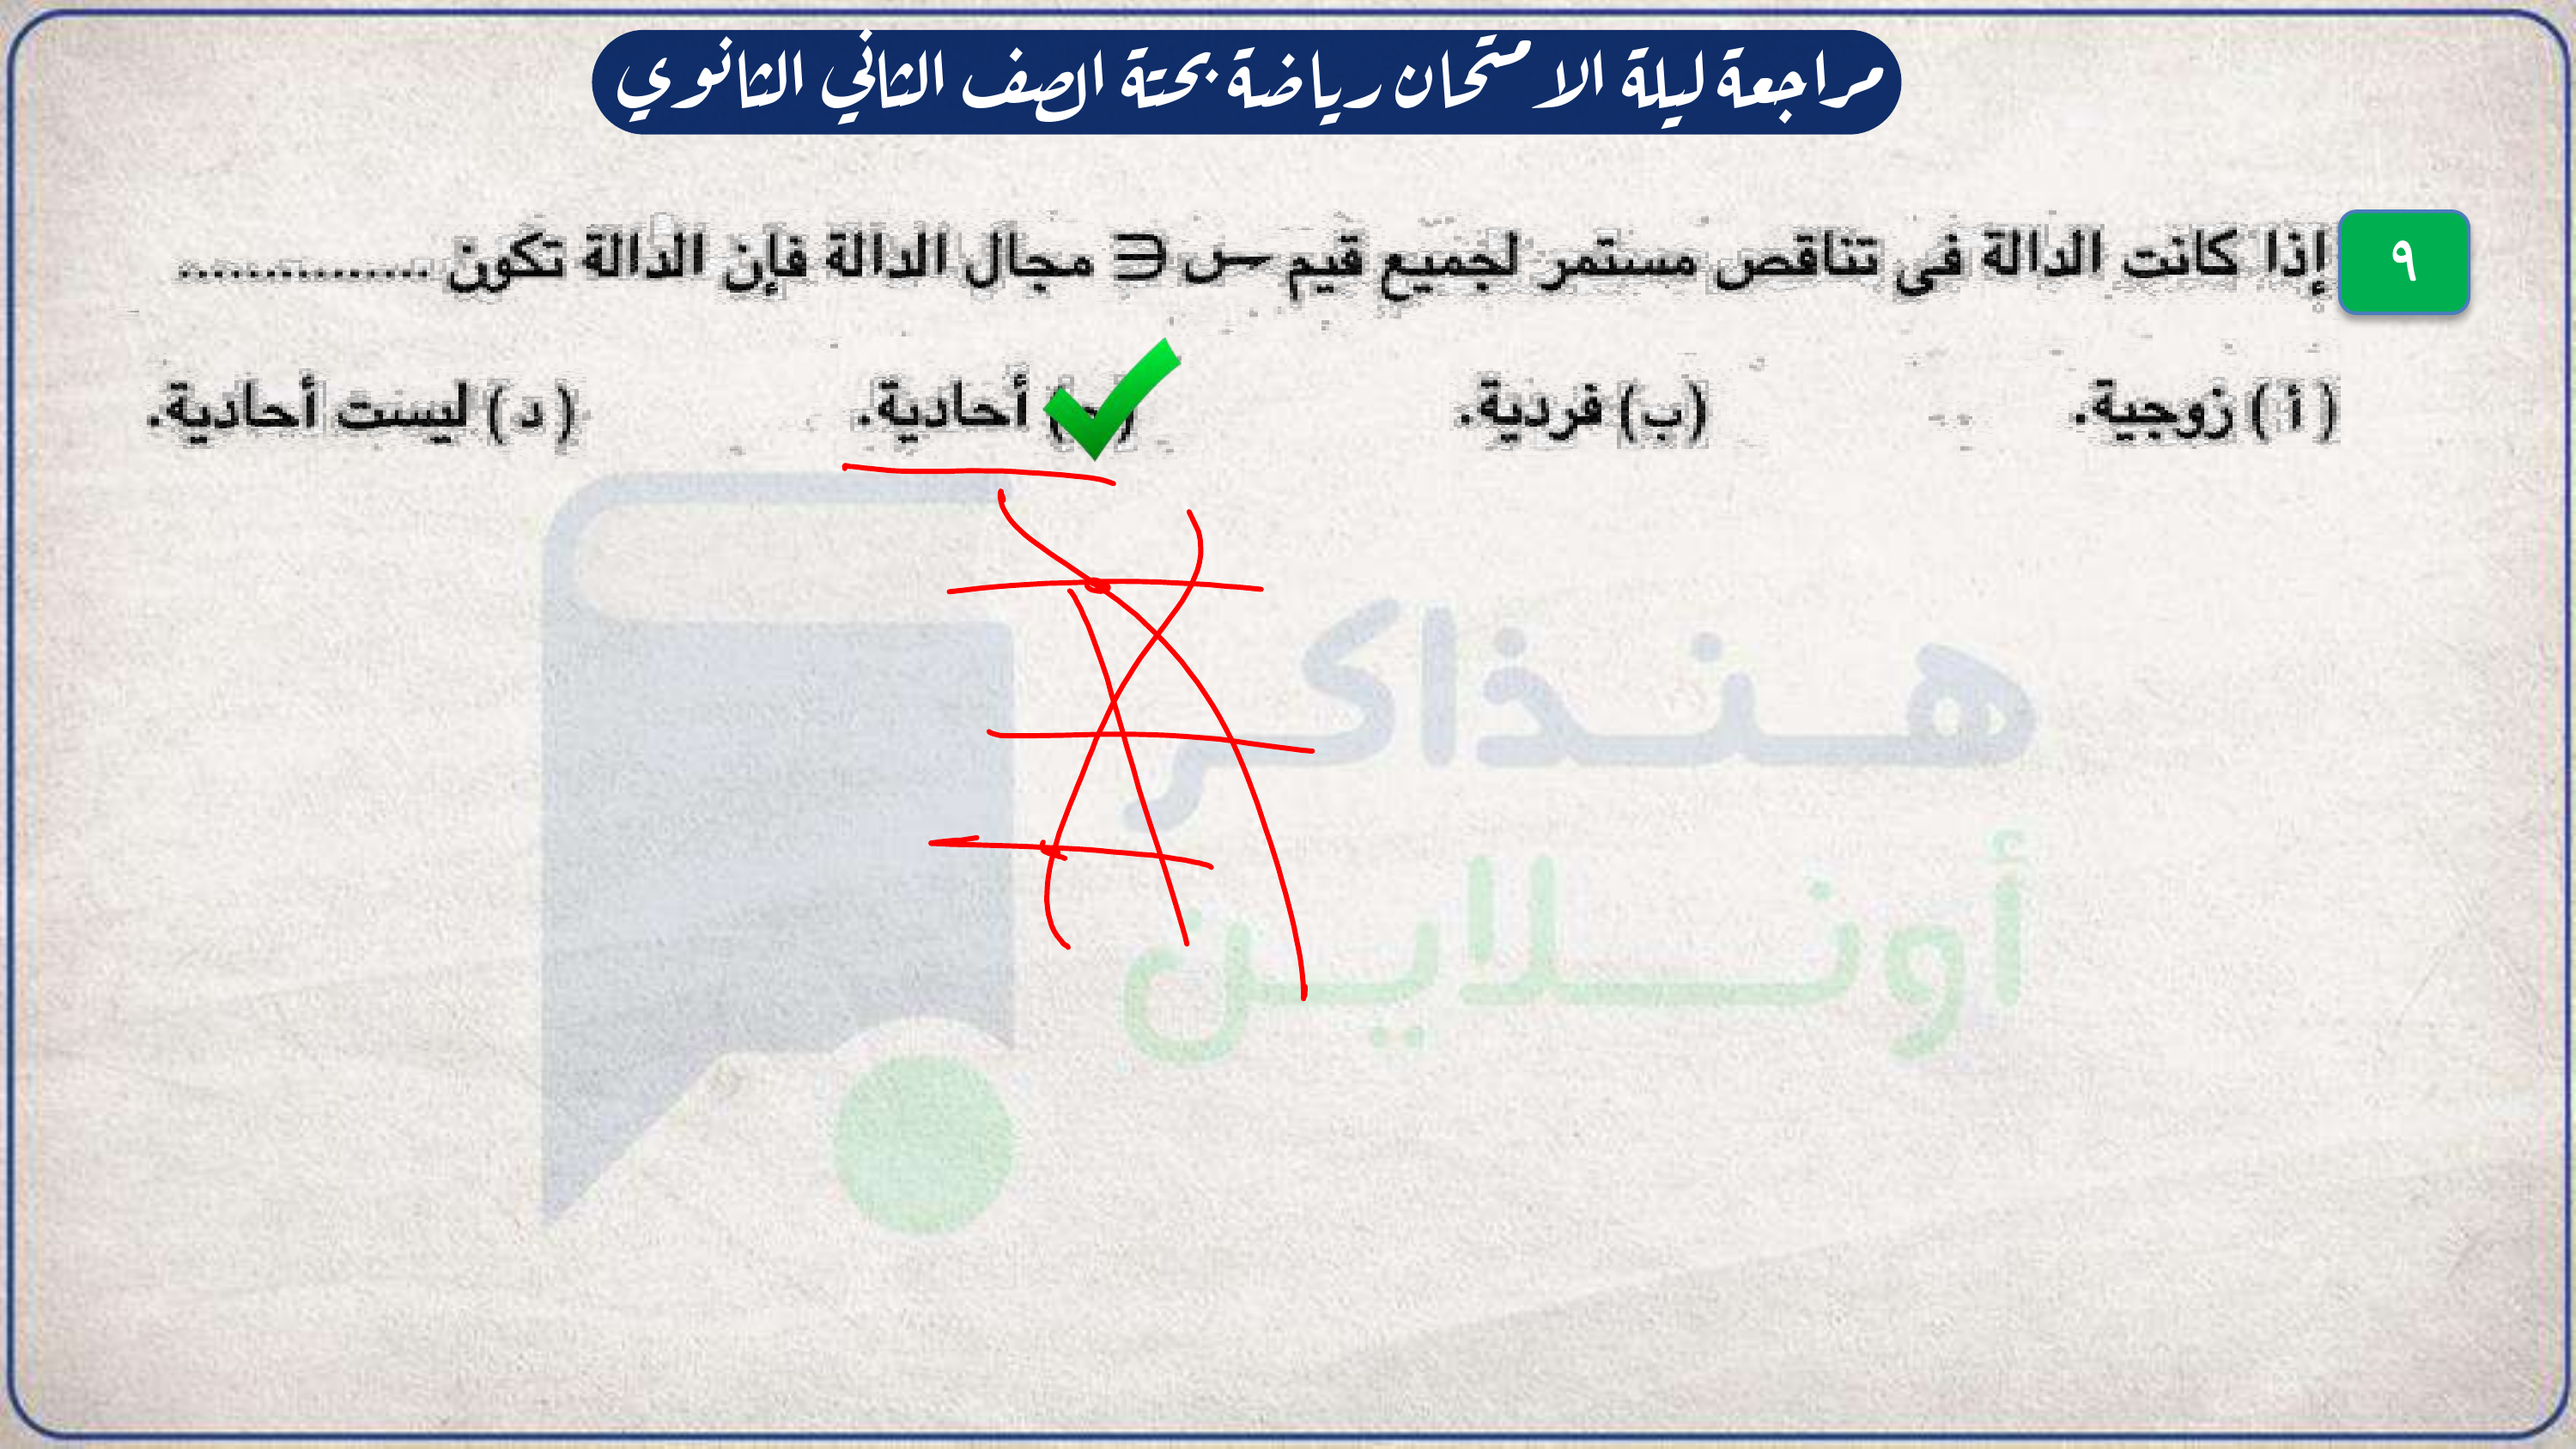 مراجعة ليلة الامتحان رياضة بحتة الصف الثاني الثانوي
٩ إذا كانت الدالة فى تناقص مستمر لجميع قيم س ∈ مجال الدالة فإن الدالة تكون ..............
(أ) زوجية. (ب) فردية. أحادية. (د) ليست أحادية.
هنذاكر
أونلاين